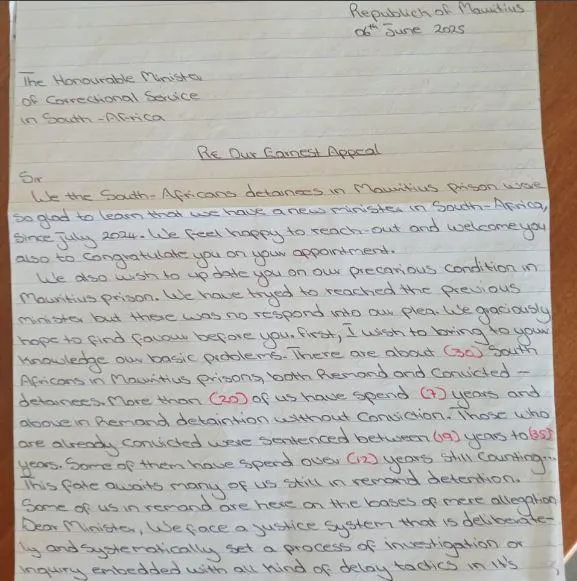 Republich of Mauritius
06th June 2025
The Honourable Minister
of Correctional Service
in South-Africa
RE Our Earnest Appeal
Sir
We the South-Africans detainees in Mauritius prison were
so glad to learn that we have a new minister in South-Africa,
since July 2024. We feel happy to reach-out and welcome you
also to congratulate you on your appointment.
We also wish to up date you on our precarious condition in
Mauritius prison. We have tryed to reached the previous
minister but there was no respond into our plea. We graciously
hope to find favour before you. First, I wish to bring to your
knowledge our basic problems. There are about (30) South
Africans in Mauritius prisons, both Remand and Convicted -
detainees. More than (20) of us have spend (7) years and
above in Remand detaintion without Conviction. Those who
are already convicted were sentenced between (19) years to (35)
years. Some of them have spend over (12) years still counting...
This fate awaits many of us still in remand detention.
Some of us in remand are here on the bases of mere allegation
Dear Minister, We face a justice system that is deliberate-
ly and systematically set a process of investigation or
inquiry embedded with all kind of delay tactics in it's